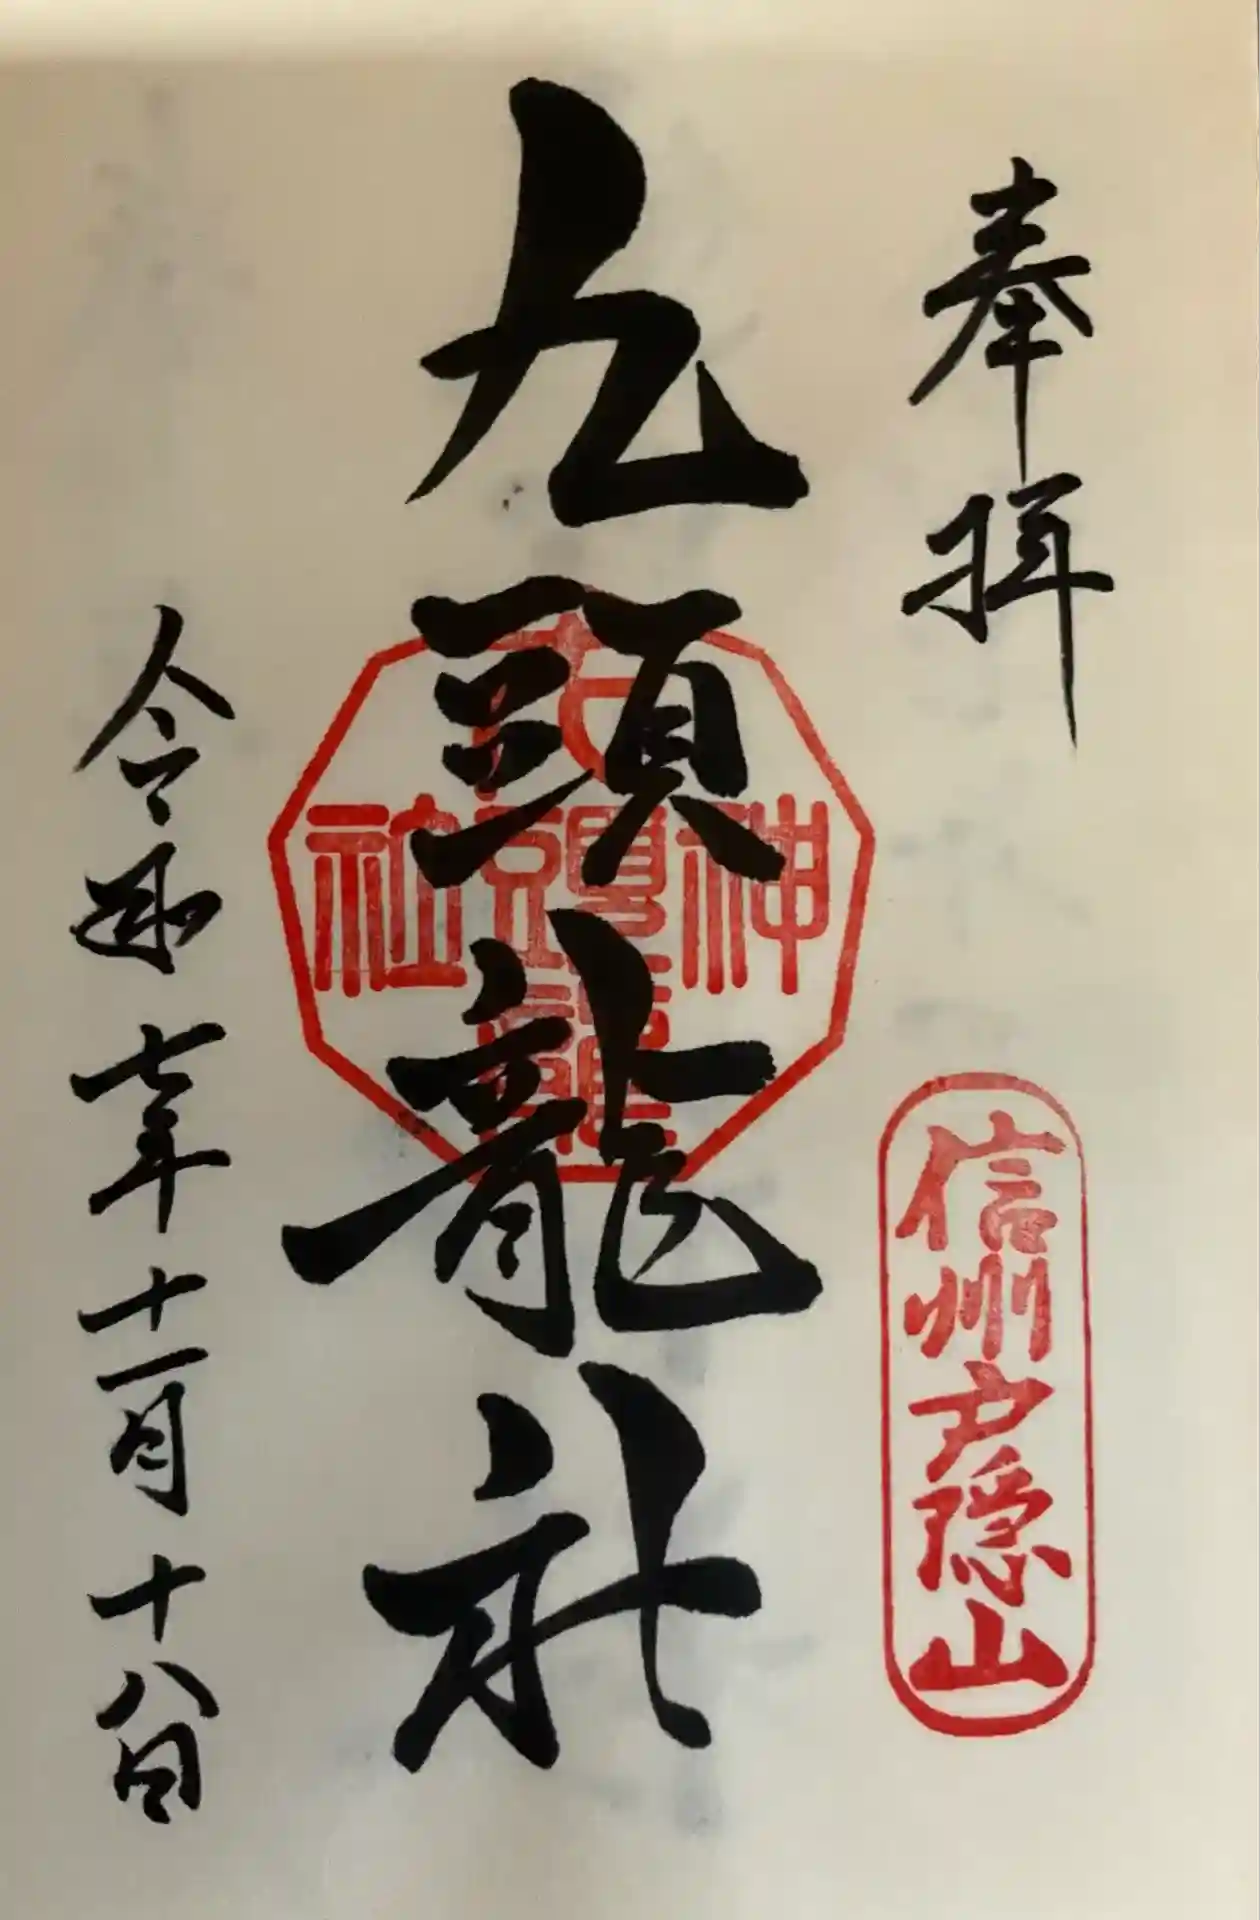 奉拝
信州戸隠山
九頭龍社
九頭龍神社
令和七年十一月十八日